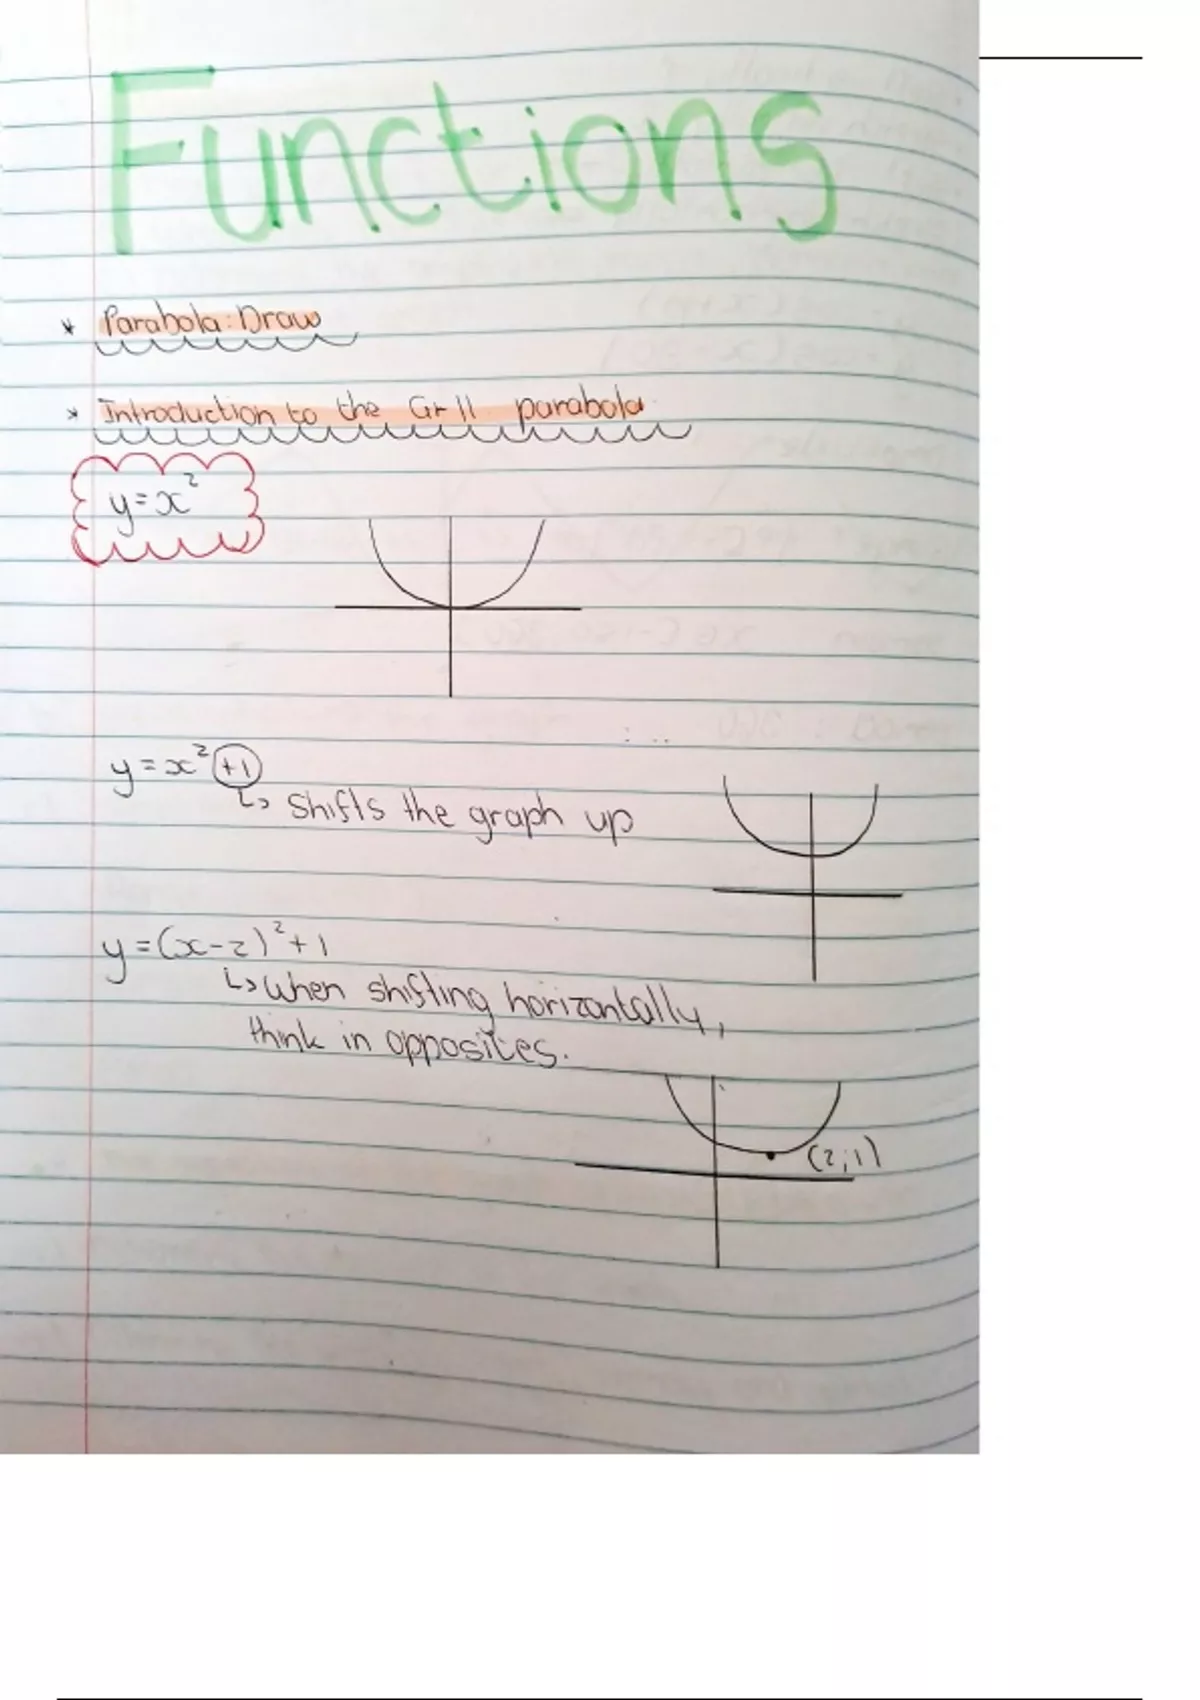 Functions
* Parabola: Draw
* Introduction to the Gr 11 parabola
y=x²
y=x²+1
↳ Shifts the graph up
y=(x-2)²+1
↳ When shifting horizontally,
think in opposites.
(2;1)